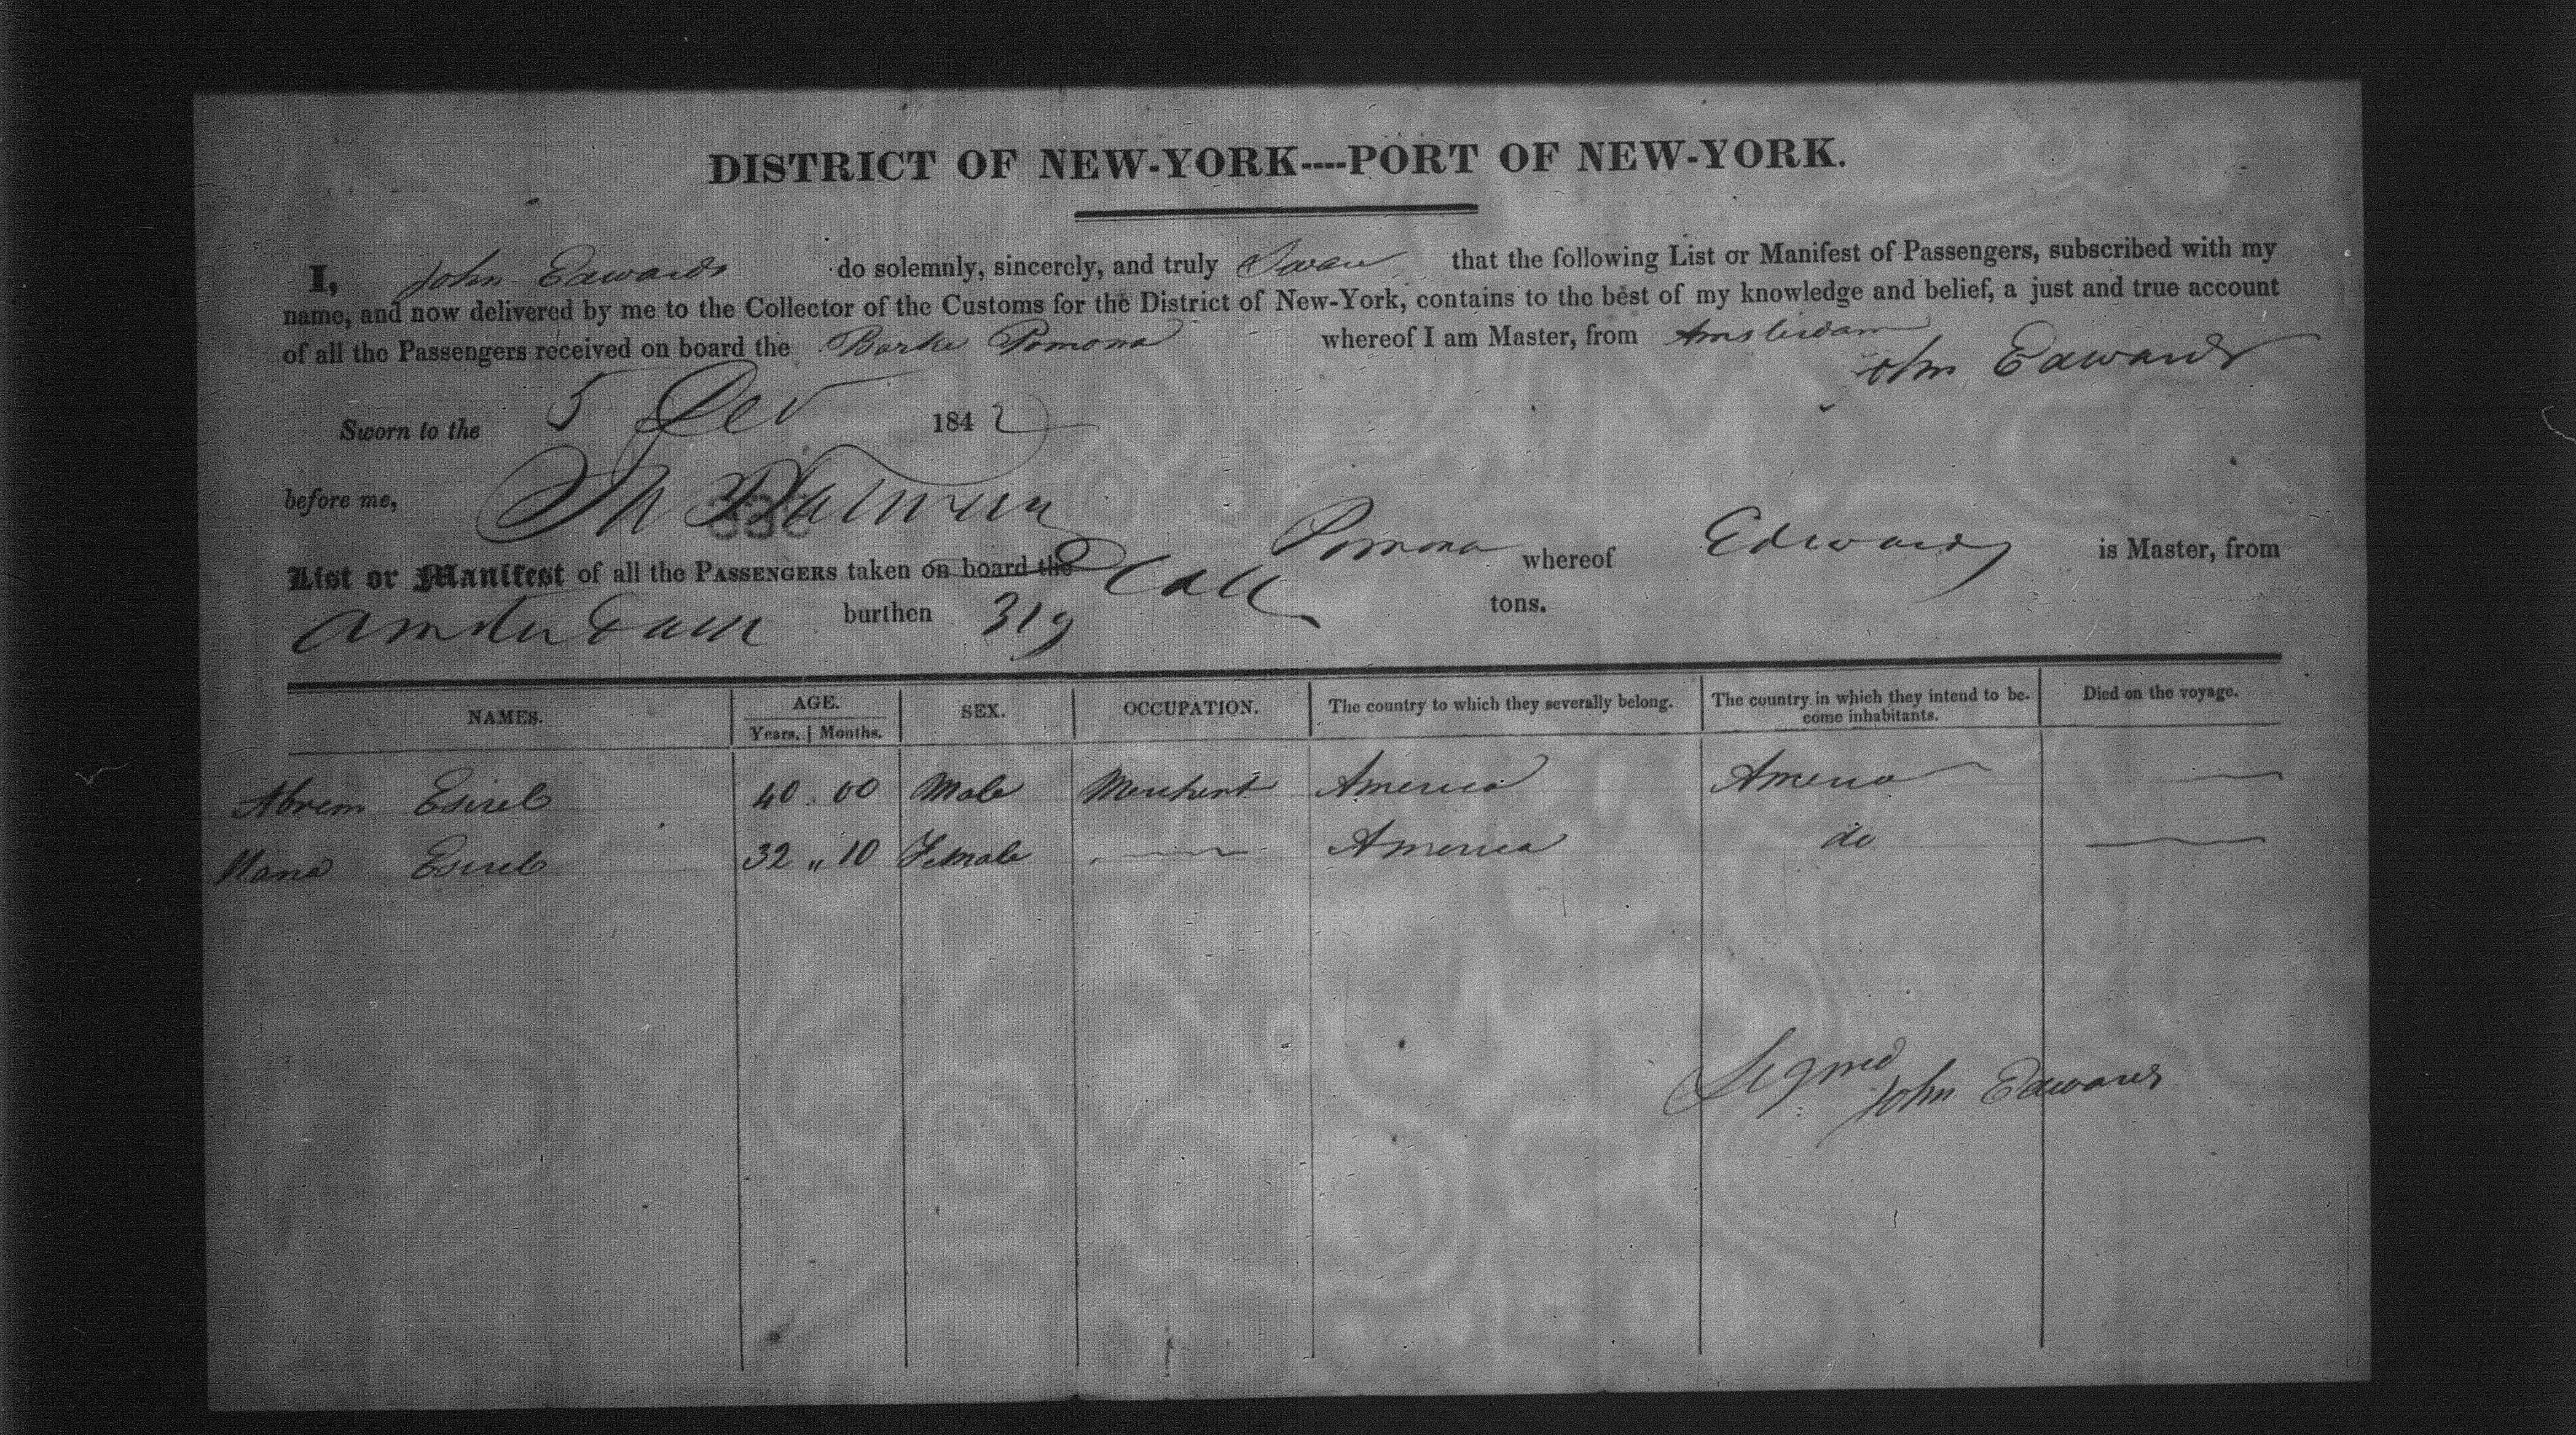 DISTRICT OF NEW-YORK----PORT OF NEW-YORK.
I, John Edwards do solemnly, sincerely, and truly Swear that the following List or Manifest of Passengers, subscribed with my
name, and now delivered by me to the Collector of the Customs for the District of New-York, contains to the best of my knowledge and belief, a just and true account
of all the Passengers received on board the Barke Pomona whereof I am Master, from Amsterdam
John Edwards
Sworn to the 5 Dec 1842
before me,
List or Manifest of all the PASSENGERS taken on board the Pomona whereof Edwards is Master, from
Amsterdam burthen 319 tons.
NAMES. AGE. SEX. OCCUPATION. The country to which they severally belong. The country in which they intend to be-come inhabitants. Died on the voyage.
Years. Months.
Abrem 40 . 00 Male Merchent America America
32 „ 10 Female America do
Signed
John Edwards